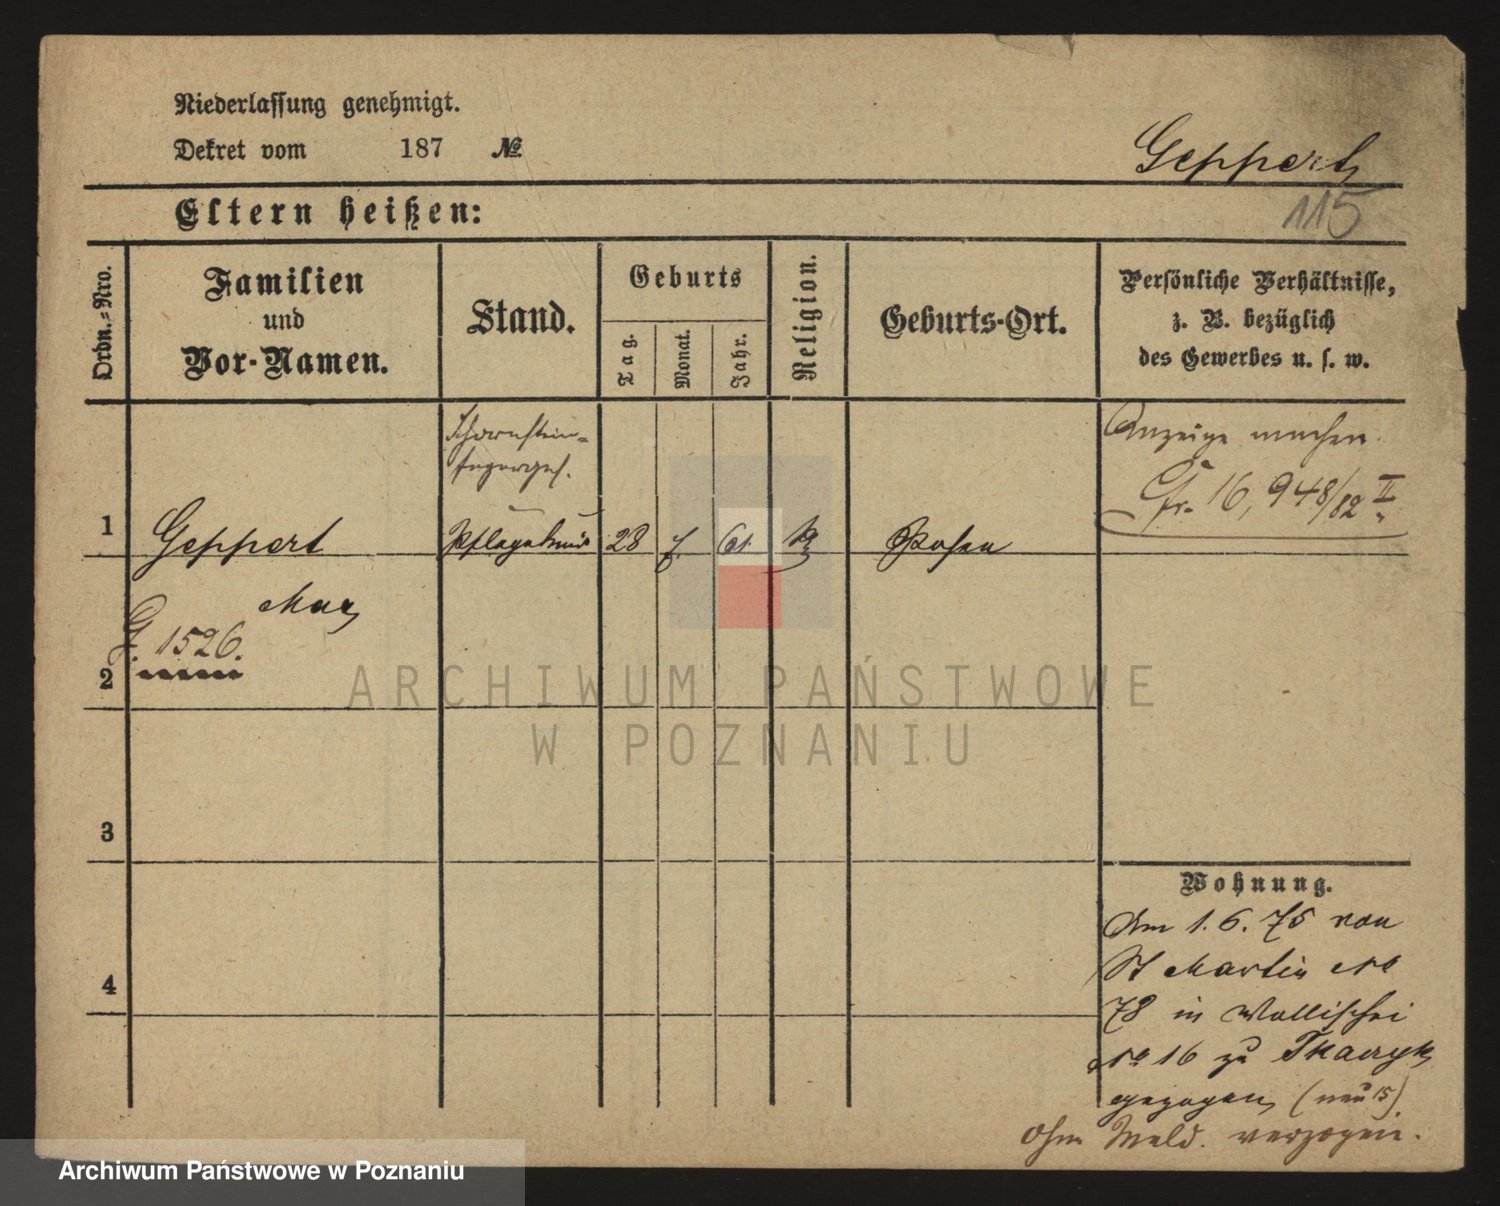 Niederlassung genehmigt.
Dekret vom 187 №
Geppert
115
Eltern heißen:
Ordn.-Nro.
Familien
und
Vor-Namen.
Stand.
Geburts
Tag.
Monat.
Jahr.
Religion.
Geburts-Ort.
Persönliche Verhältnisse,
z. B. bezüglich
des Gewerbes u. s. w.
Schornstein-
fegerges.
Anzeige machen.
16,948/82 II
1 Geppert Pflegekind 28 7. 61. k Posen
Max
G. 1526.
2
3
4
Wohnung.
Am 1. 6. 75 von
St Martin No
78 in Wallischei
No 16 zu
gezogen (neu 15)
Ohne Meld. verzogen.
ARCHIWUM PAŃSTWOWE
W POZNANIU
Archiwum Państwowe w Poznaniu